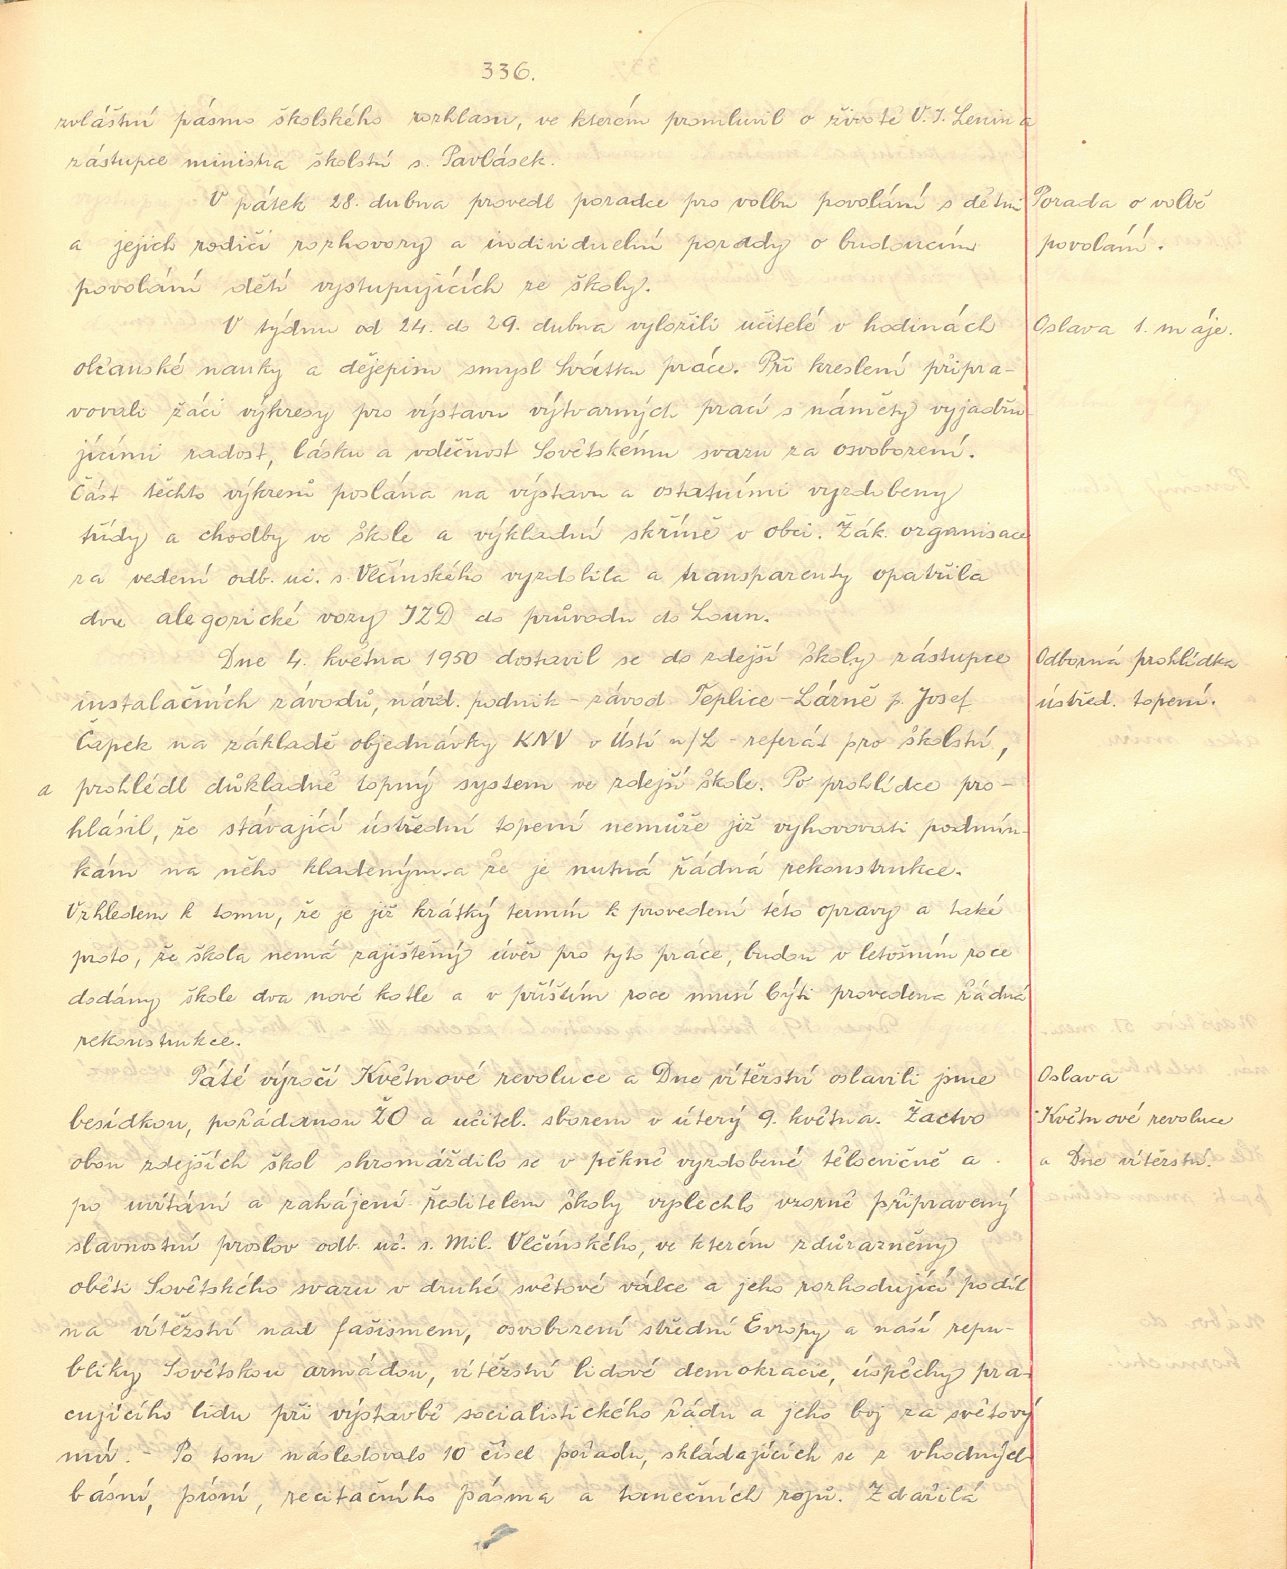 336.
zvláštní pásmo školského rozhlasu, ve kterém promluvil o životě V. I. Lenina
zástupce ministra školství s. Pavlásek.
V pátek 28. dubna provedl poradce pro volbu povolání s dětmi
Porada o volbě
a jejich rodiči rozhovory a individuelní porady o budoucím
povolání.
povolání dětí vystupujících ze školy.
V týdnu od 24. do 29. dubna vyložili učitelé v hodinách
Oslava 1. máje.
občanské nauky a dějepisu smysl Svátku práce. Při kreslení připra-
vovali žáci výkresy pro výstavu výtvarných prací s náměty vyjadřu
jícími radost, lásku a vděčnost Sovětskému svazu za osvobození.
Část těchto výkresů poslána na výstavu a ostatními vyzdobeny
třídy a chodby ve škole a výkladní skříně v obci. Žák. organisace
za vedení odb. uč. s. Vlčinského vyzdobila a transparenty opatřila
dva alegorické vozy JZD do průvodu do Loun.
Dne 4. května 1950 dostavil se do zdejší školy zástupce
Odborná prohlídka
instalačních závodů, národ. podnik - závod Teplice - Lázně p. Josef
ústřed. topení.
Čapek na základě objednávky KNV v Ústí n/L - referát pro školství,
a prohlédl důkladně topný system ve zdejší škole. Po prohlídce pro-
hlásil, že stávající ústřední topení nemůže již vyhovovati podmín-
kám na něho kladeným a že je nutná řádná rekonstrukce.
Vzhledem k tomu, že je již krátký termín k provedení této opravy a také
proto, že škola nemá zajištěný úvěr pro tyto práce, budou v letošním roce
dodány škole dva nové kotle a v příštím roce musí býti provedena řádná
rekonstrukce.
Páté výročí Květnové revoluce a Dne vítězství oslavili jsme
Oslava
besídkou, pořádanou ŽO a učitel. sborem v úterý 9. května. Žactvo
Květnové revoluce
obou zdejších škol shromáždilo se v pěkně vyzdobené tělocvičně a
a Dne vítězství.
po uvítání a zahájení ředitelem školy vyslechlo vzorně připravený
slavnostní proslov odb. uč. s. Mil. Vlčinského, ve kterém zdůrazněny
oběti Sovětského svazu v druhé světové válce a jeho rozhodující podíl
na vítězství nad fašismem, osvobození střední Evropy a naší repu-
bliky Sovětskou armádou, vítězství lidové demokracie, úspěchy pra-
cujícího lidu při výstavbě socialistického řádu a jeho boj za světový
mír. - Po tom následovalo 10 čísel pořadu, skládajících se z vhodných
básní, písní, recitačního pásma a tanečních rojů. Zdařilá